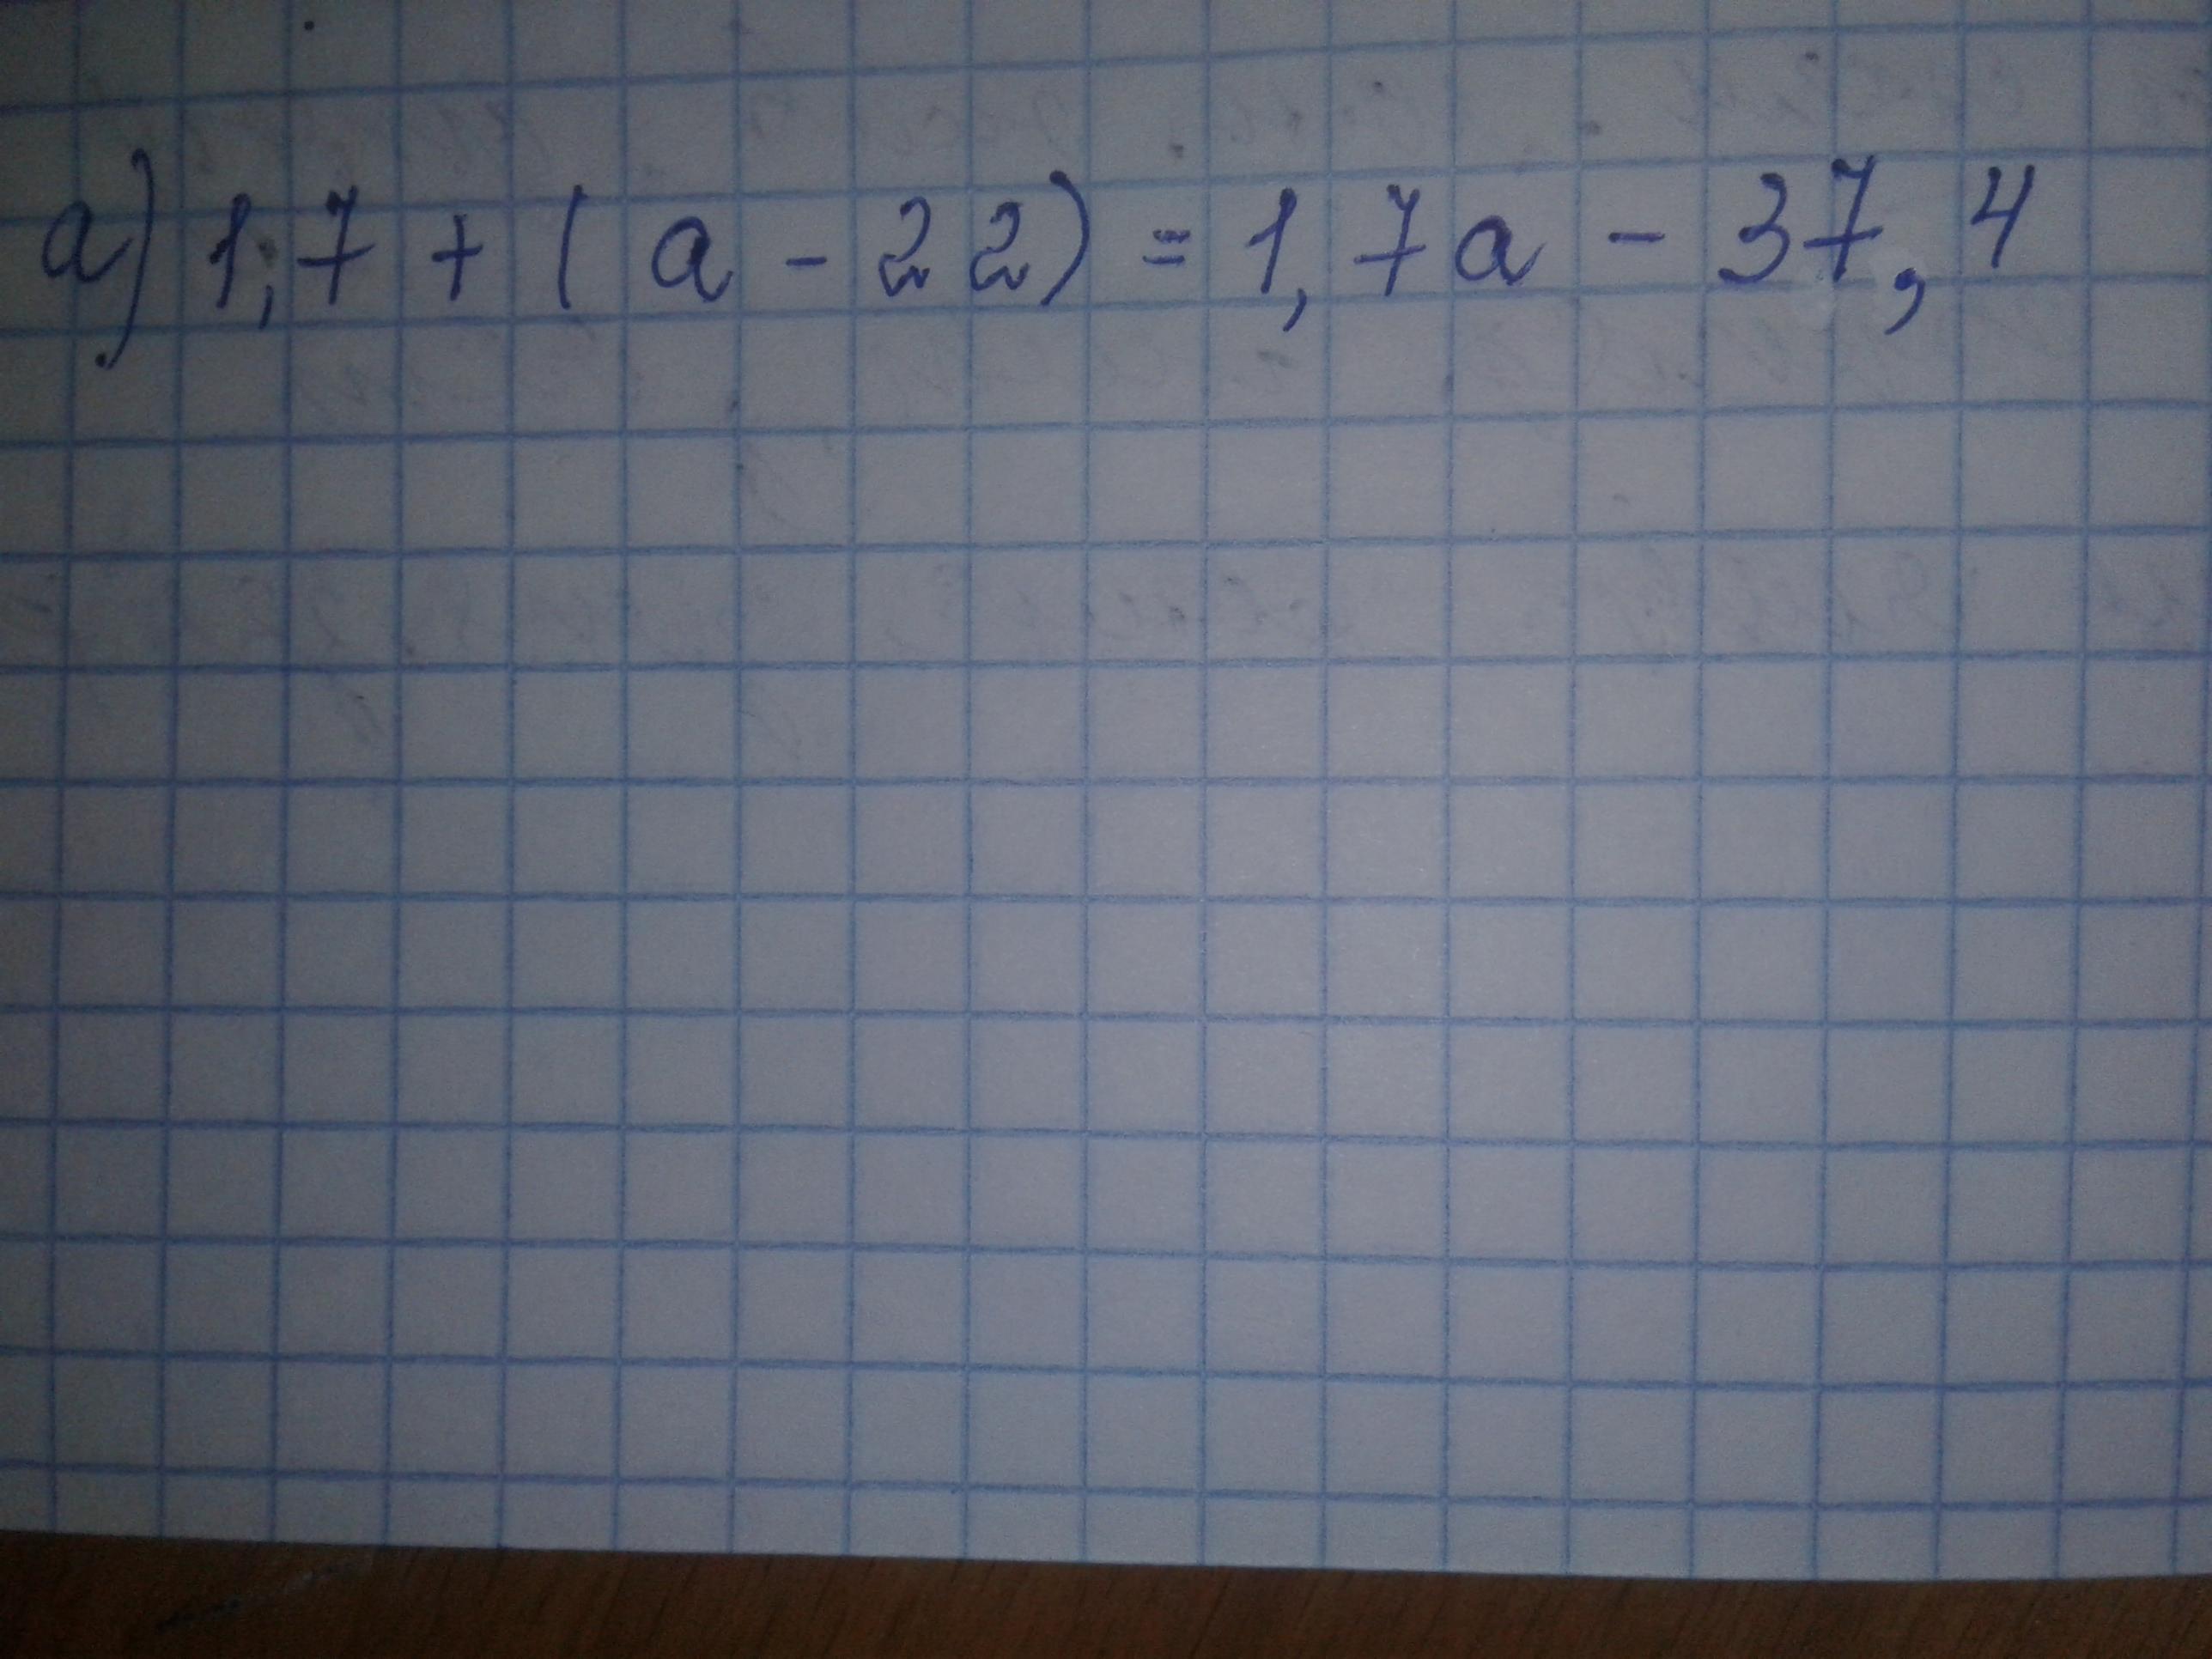 а) 1,7 + ( a - 22) = 1,7a - 37,4